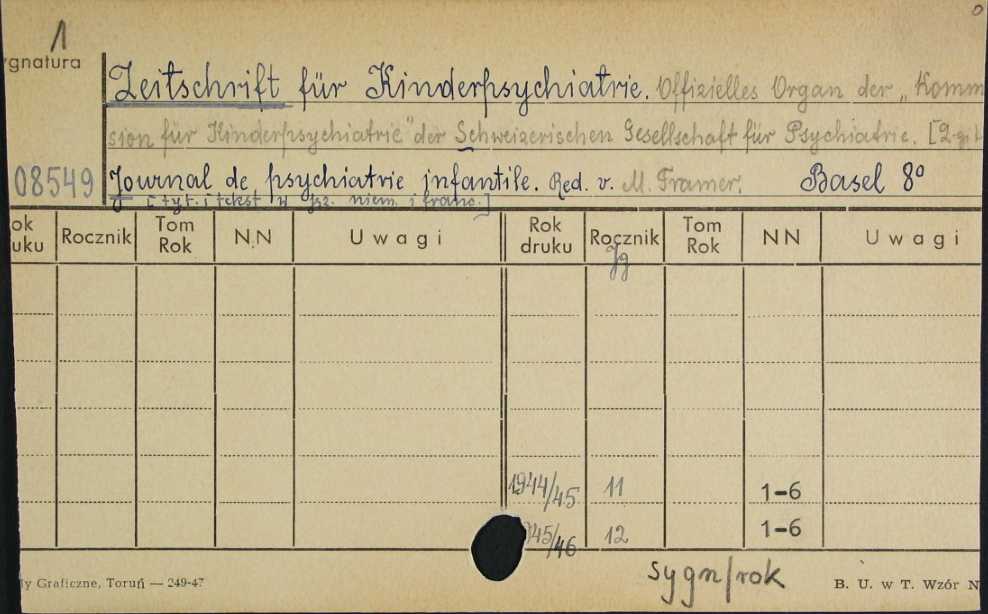 1
0
ygnatura
Zeitschrift für Kinderpsychiatrie. Offizielles Organ der „Komm
sion für Kinderpsychiatrie" der Schweizerischen Gesellschaft für Psychiatrie. [2-git
08549 Journal de psychiatrie infantile. Red. v. M. Tramer. Basel 8°
[tyt. i tekst w jęz. niem. i franc.]
ok uku Rocznik Tom Rok N.N Uwagi Rok druku Rocznik Tom Rok NN Uwagi
Jg
1944/45 11 1-6
945/46 12 1-6
sygn/rok
y Graficzne, Toruń — 249-47 B. U. w T. Wzór N